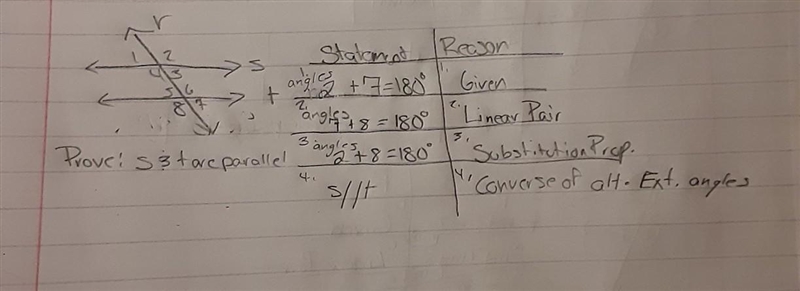 r
1 2
4 3
s
5 6
8 7
t
Prove: s & t are parallel
Statement Reason
1. angles 2 + 7 = 180° 1. Given
2. angles 7 + 8 = 180° 2. Linear Pair
3 angles 2 + 8 = 180° 3. Substitution Prop.
4. s//t 4. Converse of alt. Ext. angles